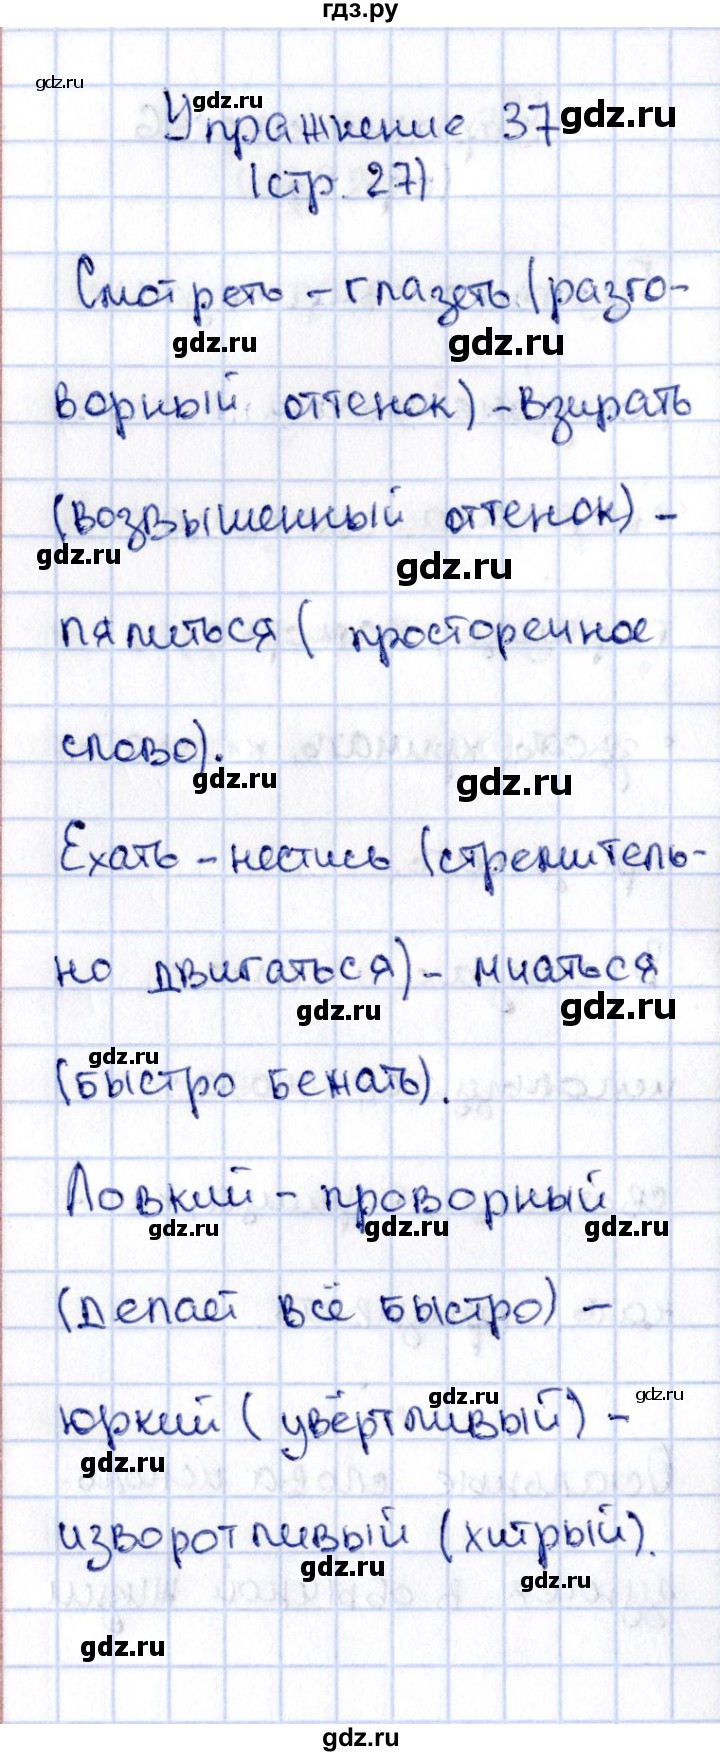 гдз.ру
gdz.ru
gdz.ru
Упражнение 37 gdz.ru
(стр. 27)
Смотреть - глазеть (разго-
gdz.ru gdz.ru
ворный оттенок) - взирать
(возвышенный оттенок) -
gdz.ru gdz.ru
пялиться (просторечное
слово).
gdz.ru gdz.ru
Ехать - нестись (стремитель-
но двигаться) - мчаться
gdz.ru gdz.ru
gdz.ru
(быстро бежать).
Ловкий - проворный
gdz.ru gdz.ru gdz.ru
(делает всё быстро) -
gdz.ru gdz.ru
юркий (увёртливый) -
gdz.ru
изворотливый (хитрый).
gdz.ru gdz.ru
gdz.ru
gdz.ru